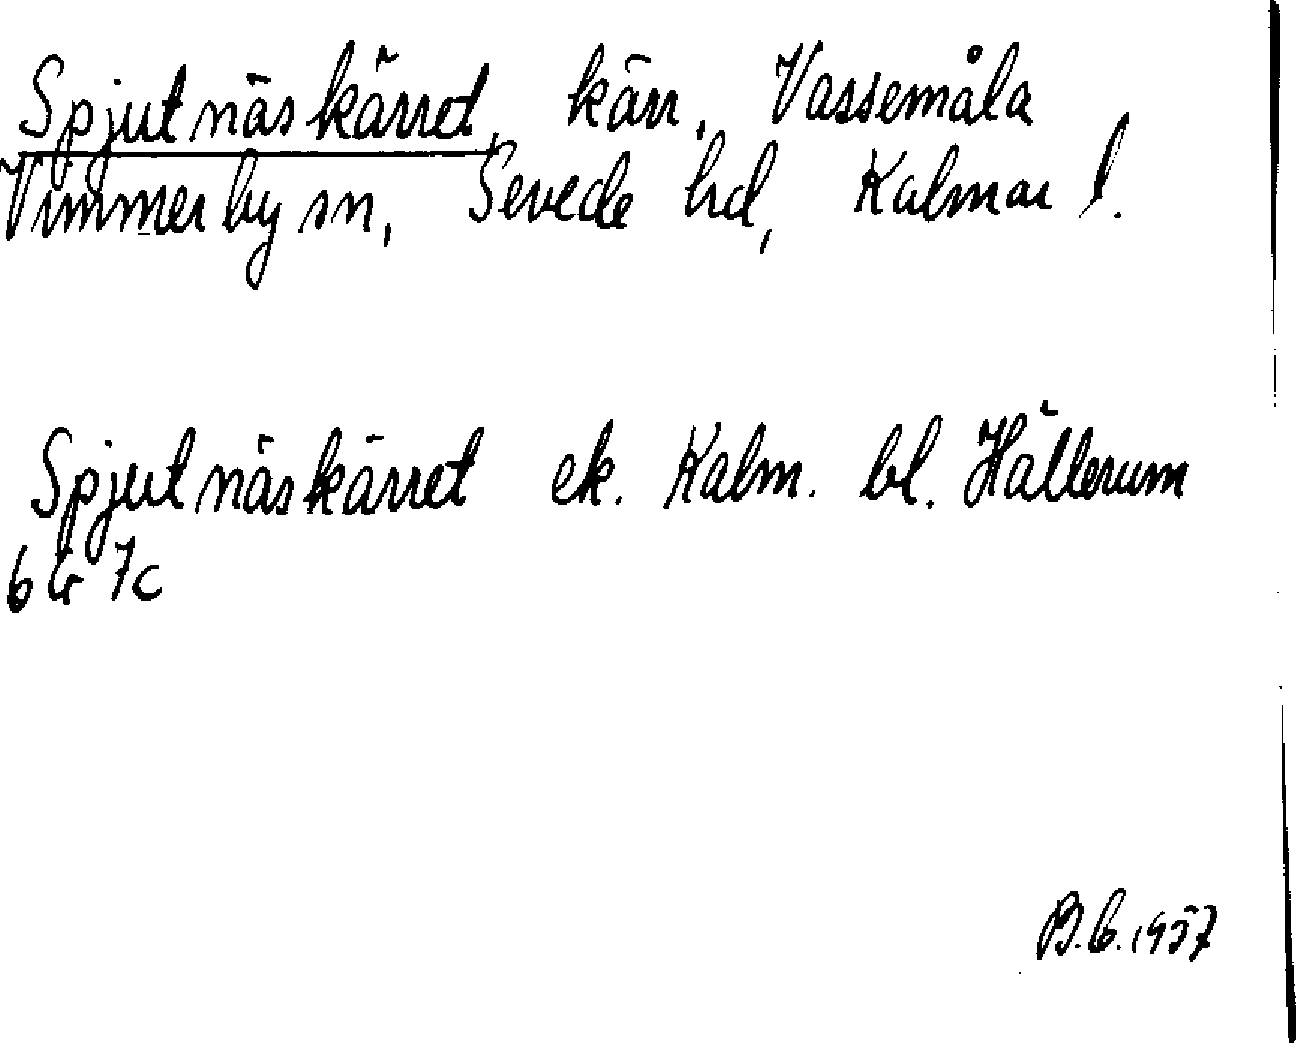 Spjutnäskärret, kärr, Vassemåla
Vimmerby sn, Sevede hd, Kalmar l.
Spjutnäskärret ek. Kalm. bl. Hällerum
6 G 7c
B.G. 1957